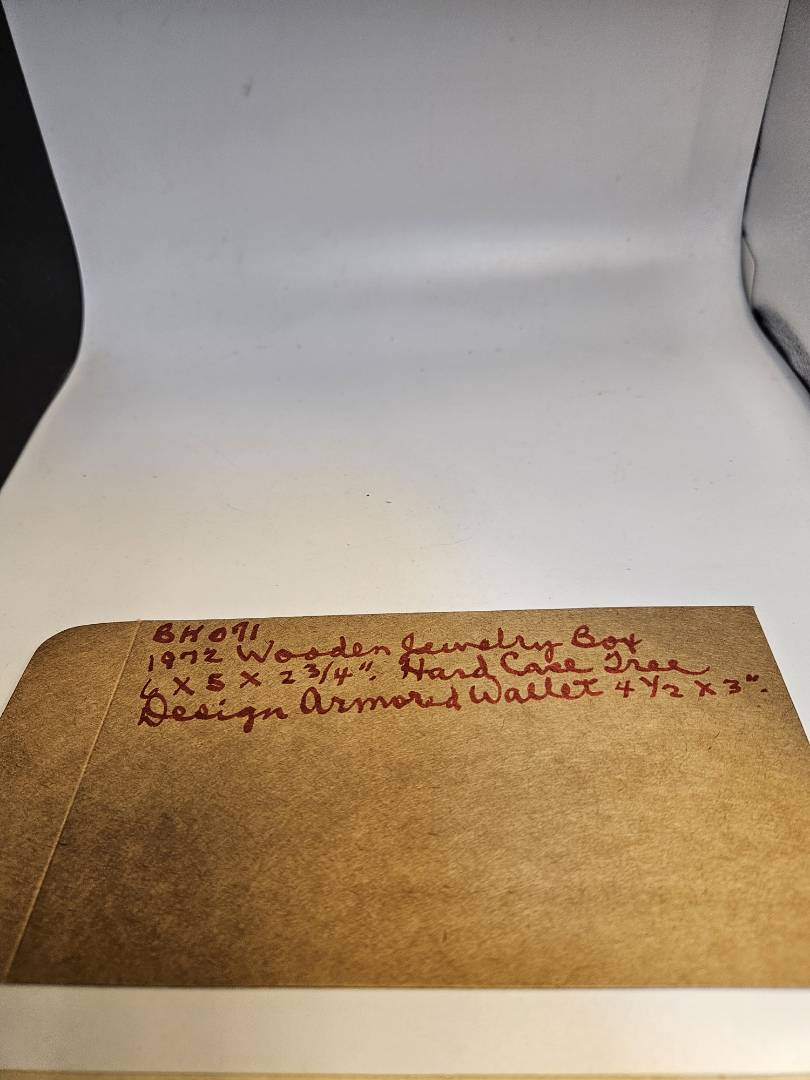 BH071
1972 Wooden Jewelry Box
6 X 5 X 2 3/4". Hard Case Tree
Design Armored Wallet 4 1/2 X 3".